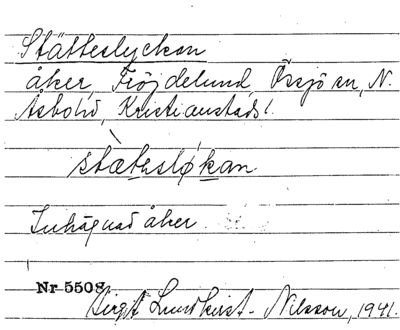 Stätteslyckan
åker, Fröjdelund, Össjö sn, N.
Åsbo hd, Kristianstads l.
stætəsløkan
Inhägnad åker.
Nr 5508
Birgit Lundkvist-Nilsson, 1941.